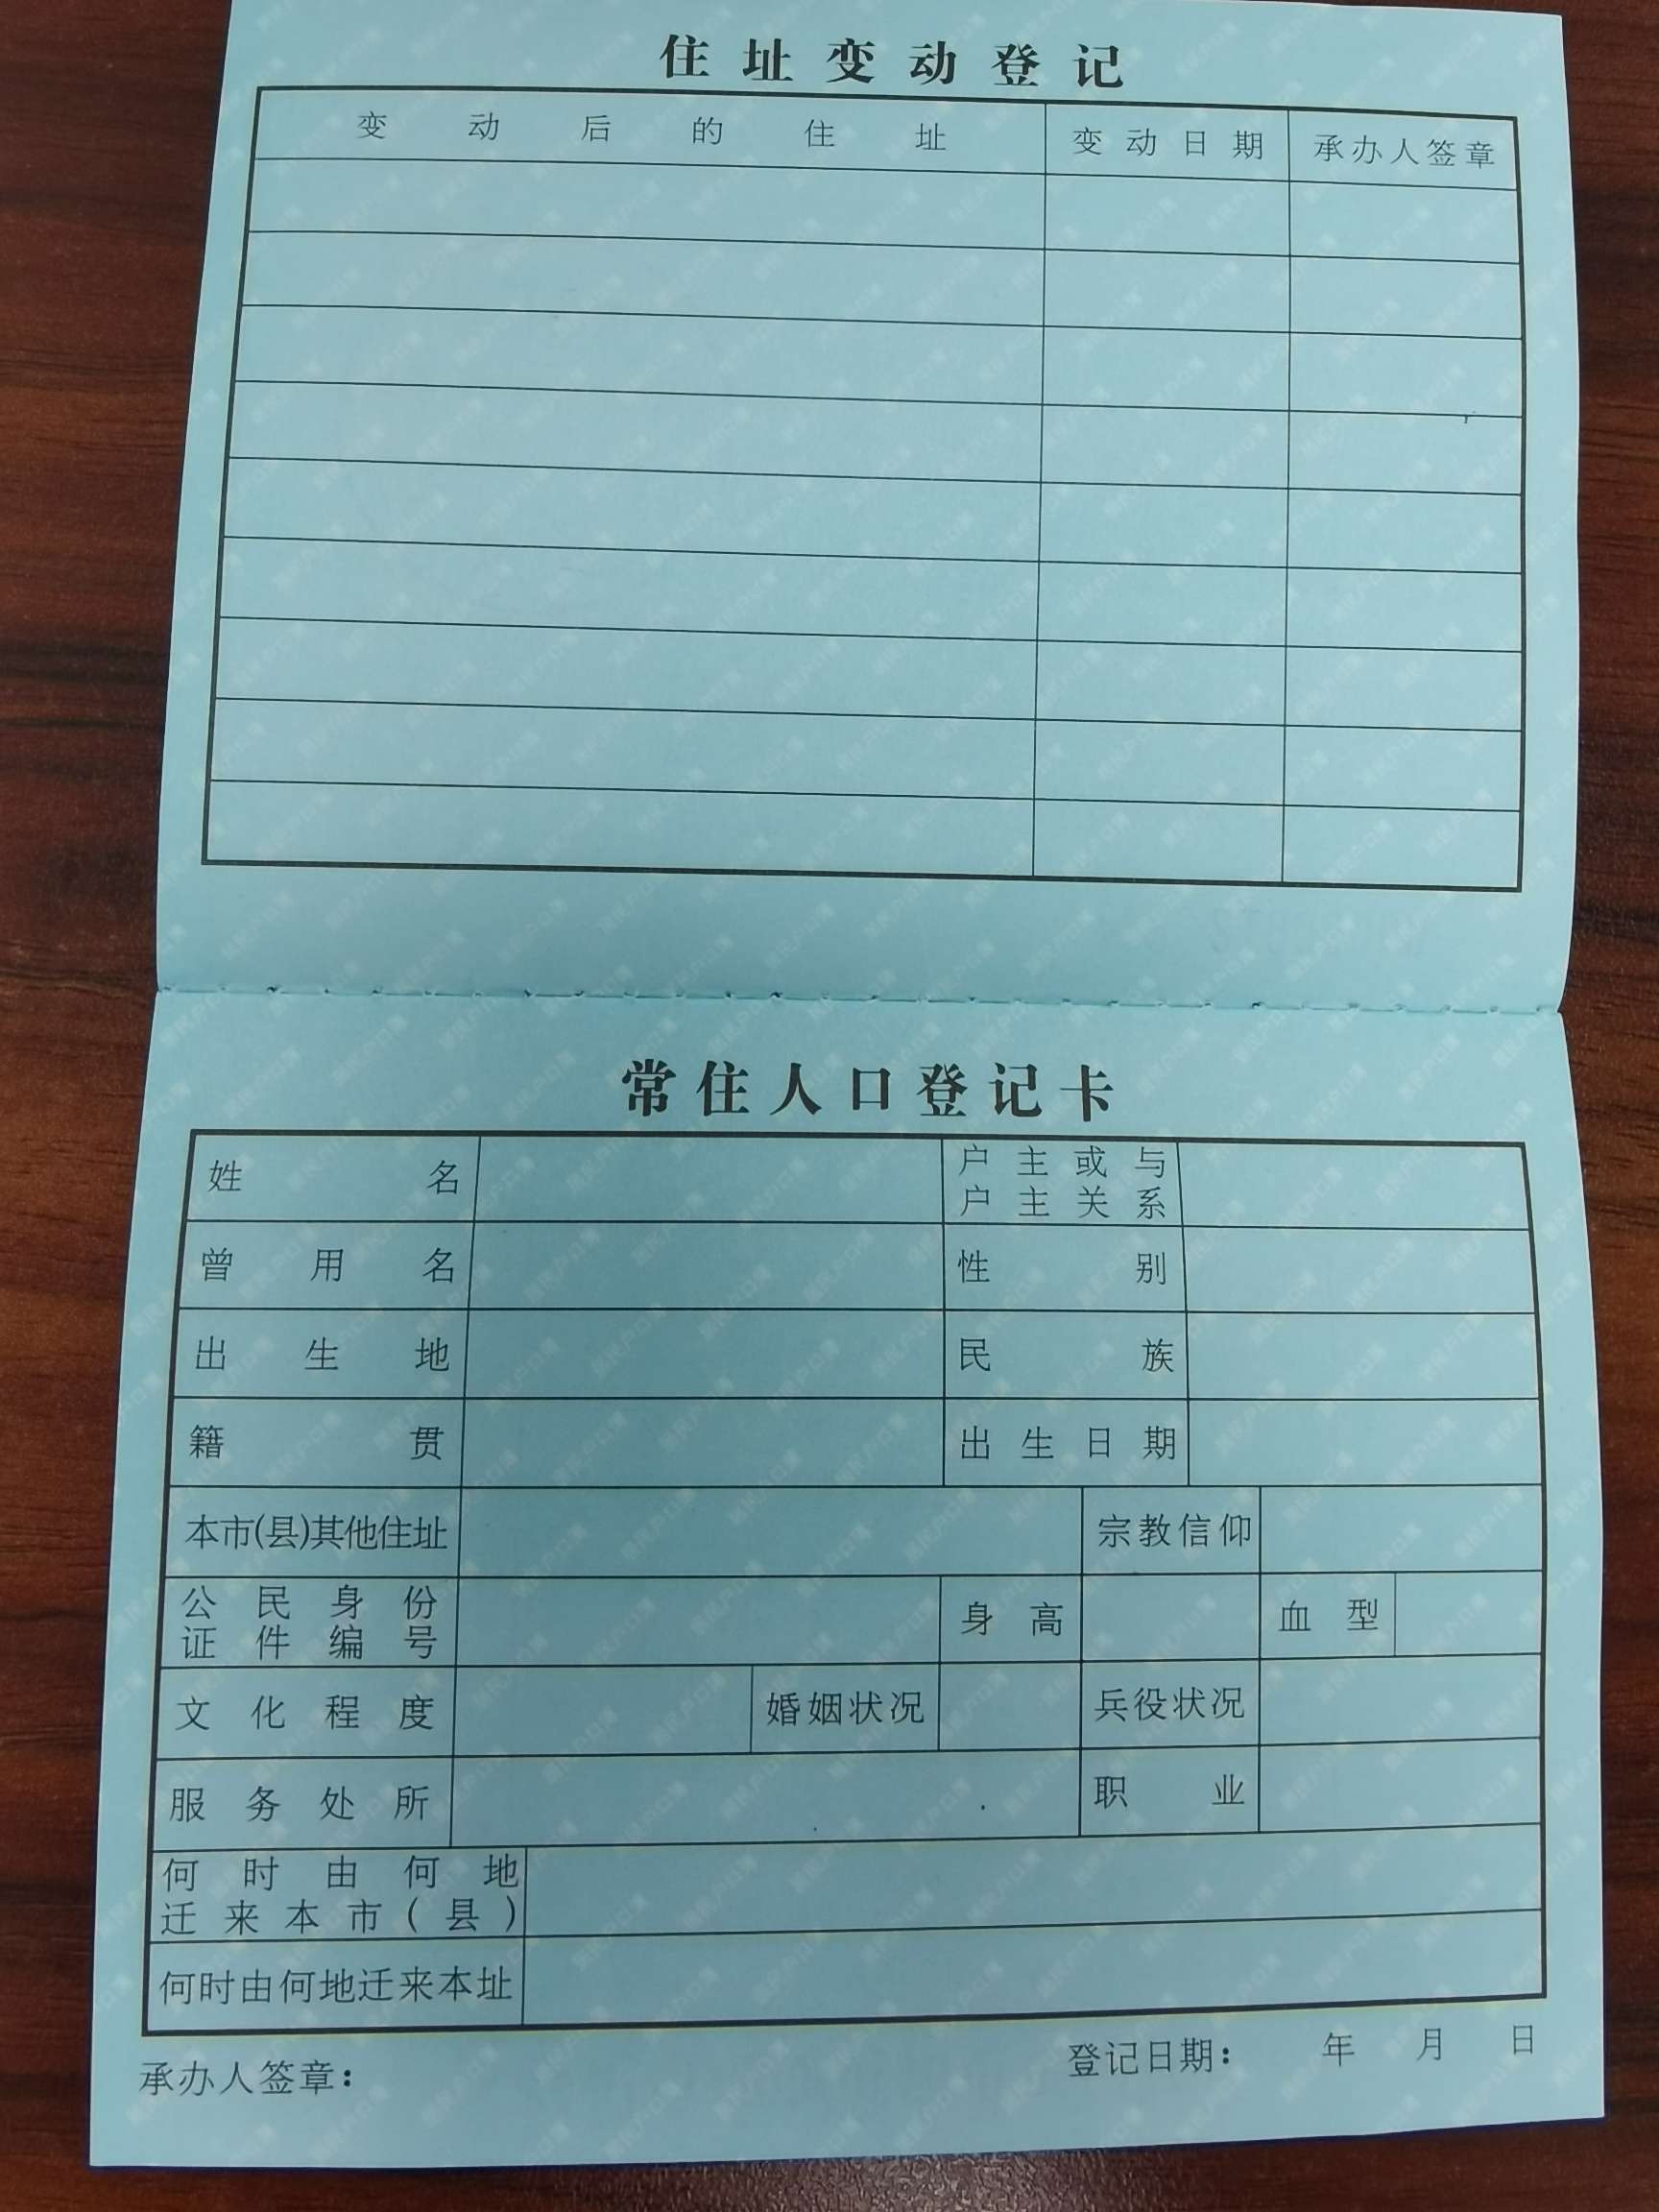 住址变动登记
变动后的住址 变动日期 承办人签章
常住人口登记卡
姓名 户主或与户主关系
曾用名 性别
出生地 民族
籍贯 出生日期
本市(县)其他住址 宗教信仰
公民身份证件编号 身高 血型
文化程度 婚姻状况 兵役状况
服务处所 职业
何时由何地
迁来本市(县)
何时由何地迁来本址
承办人签章： 登记日期： 年 月 日